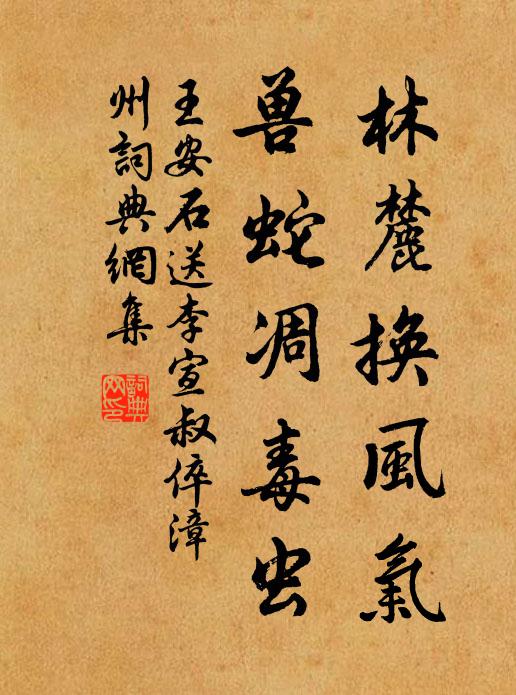 林麓換風氣
兽蛇凋毒虫
王安石送李宣叔倅漳
州詞典網集
詞典
网印